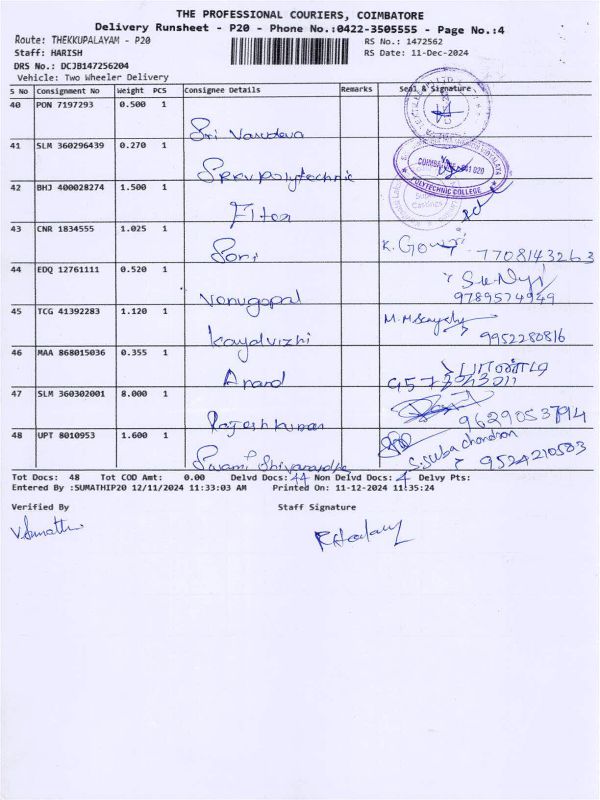 THE PROFESSIONAL COURIERS, COIMBATORE
Delivery Runsheet - P20 - Phone No.:0422-3505555 - Page No.:4
Route: THEKKUPALAYAM - P20
RS No.: 1472562
Staff: HARISH
RS Date: 11-Dec-2024
DRS No.: DCJB147256204
Vehicle: Two Wheeler Delivery
S No Consignment No Weight PCS Consignee Details Remarks Seal & Signature
40 PON 7197293 0.500 1
Sri Vasudeva
41 SLM 360296439 0.270 1
COIMBATORE 641 020
POLYTECHNIC COLLEGE
Polytechnic
42 BHJ 400028274 1.500 1
Castings
Fiter
43 CNR 1834555 1.025 1
Sori K. Gowri 7708143263
44 EDQ 12761111 0.520 1
9789574949
Venugopal
45 TCG 41392283 1.120 1
9952280816
Kayalvizhi
46 MAA 868015036 0.355 1
பாண்டி
Anand
47 SLM 360302001 8.000 1
Rajeshkumar 9629053794
48 UPT 8010953 1.600 1
S. Suba chandran
9524210583
Swami
Tot Docs: 48 Tot COD Amt: 0.00 Delvd Docs: 44 Non Delvd Docs: 4 Delvy Pts:
Entered By :SUMATHIP20 12/11/2024 11:33:03 AM Printed On: 11-12-2024 11:35:24
Verified By Staff Signature
V. Sumathi